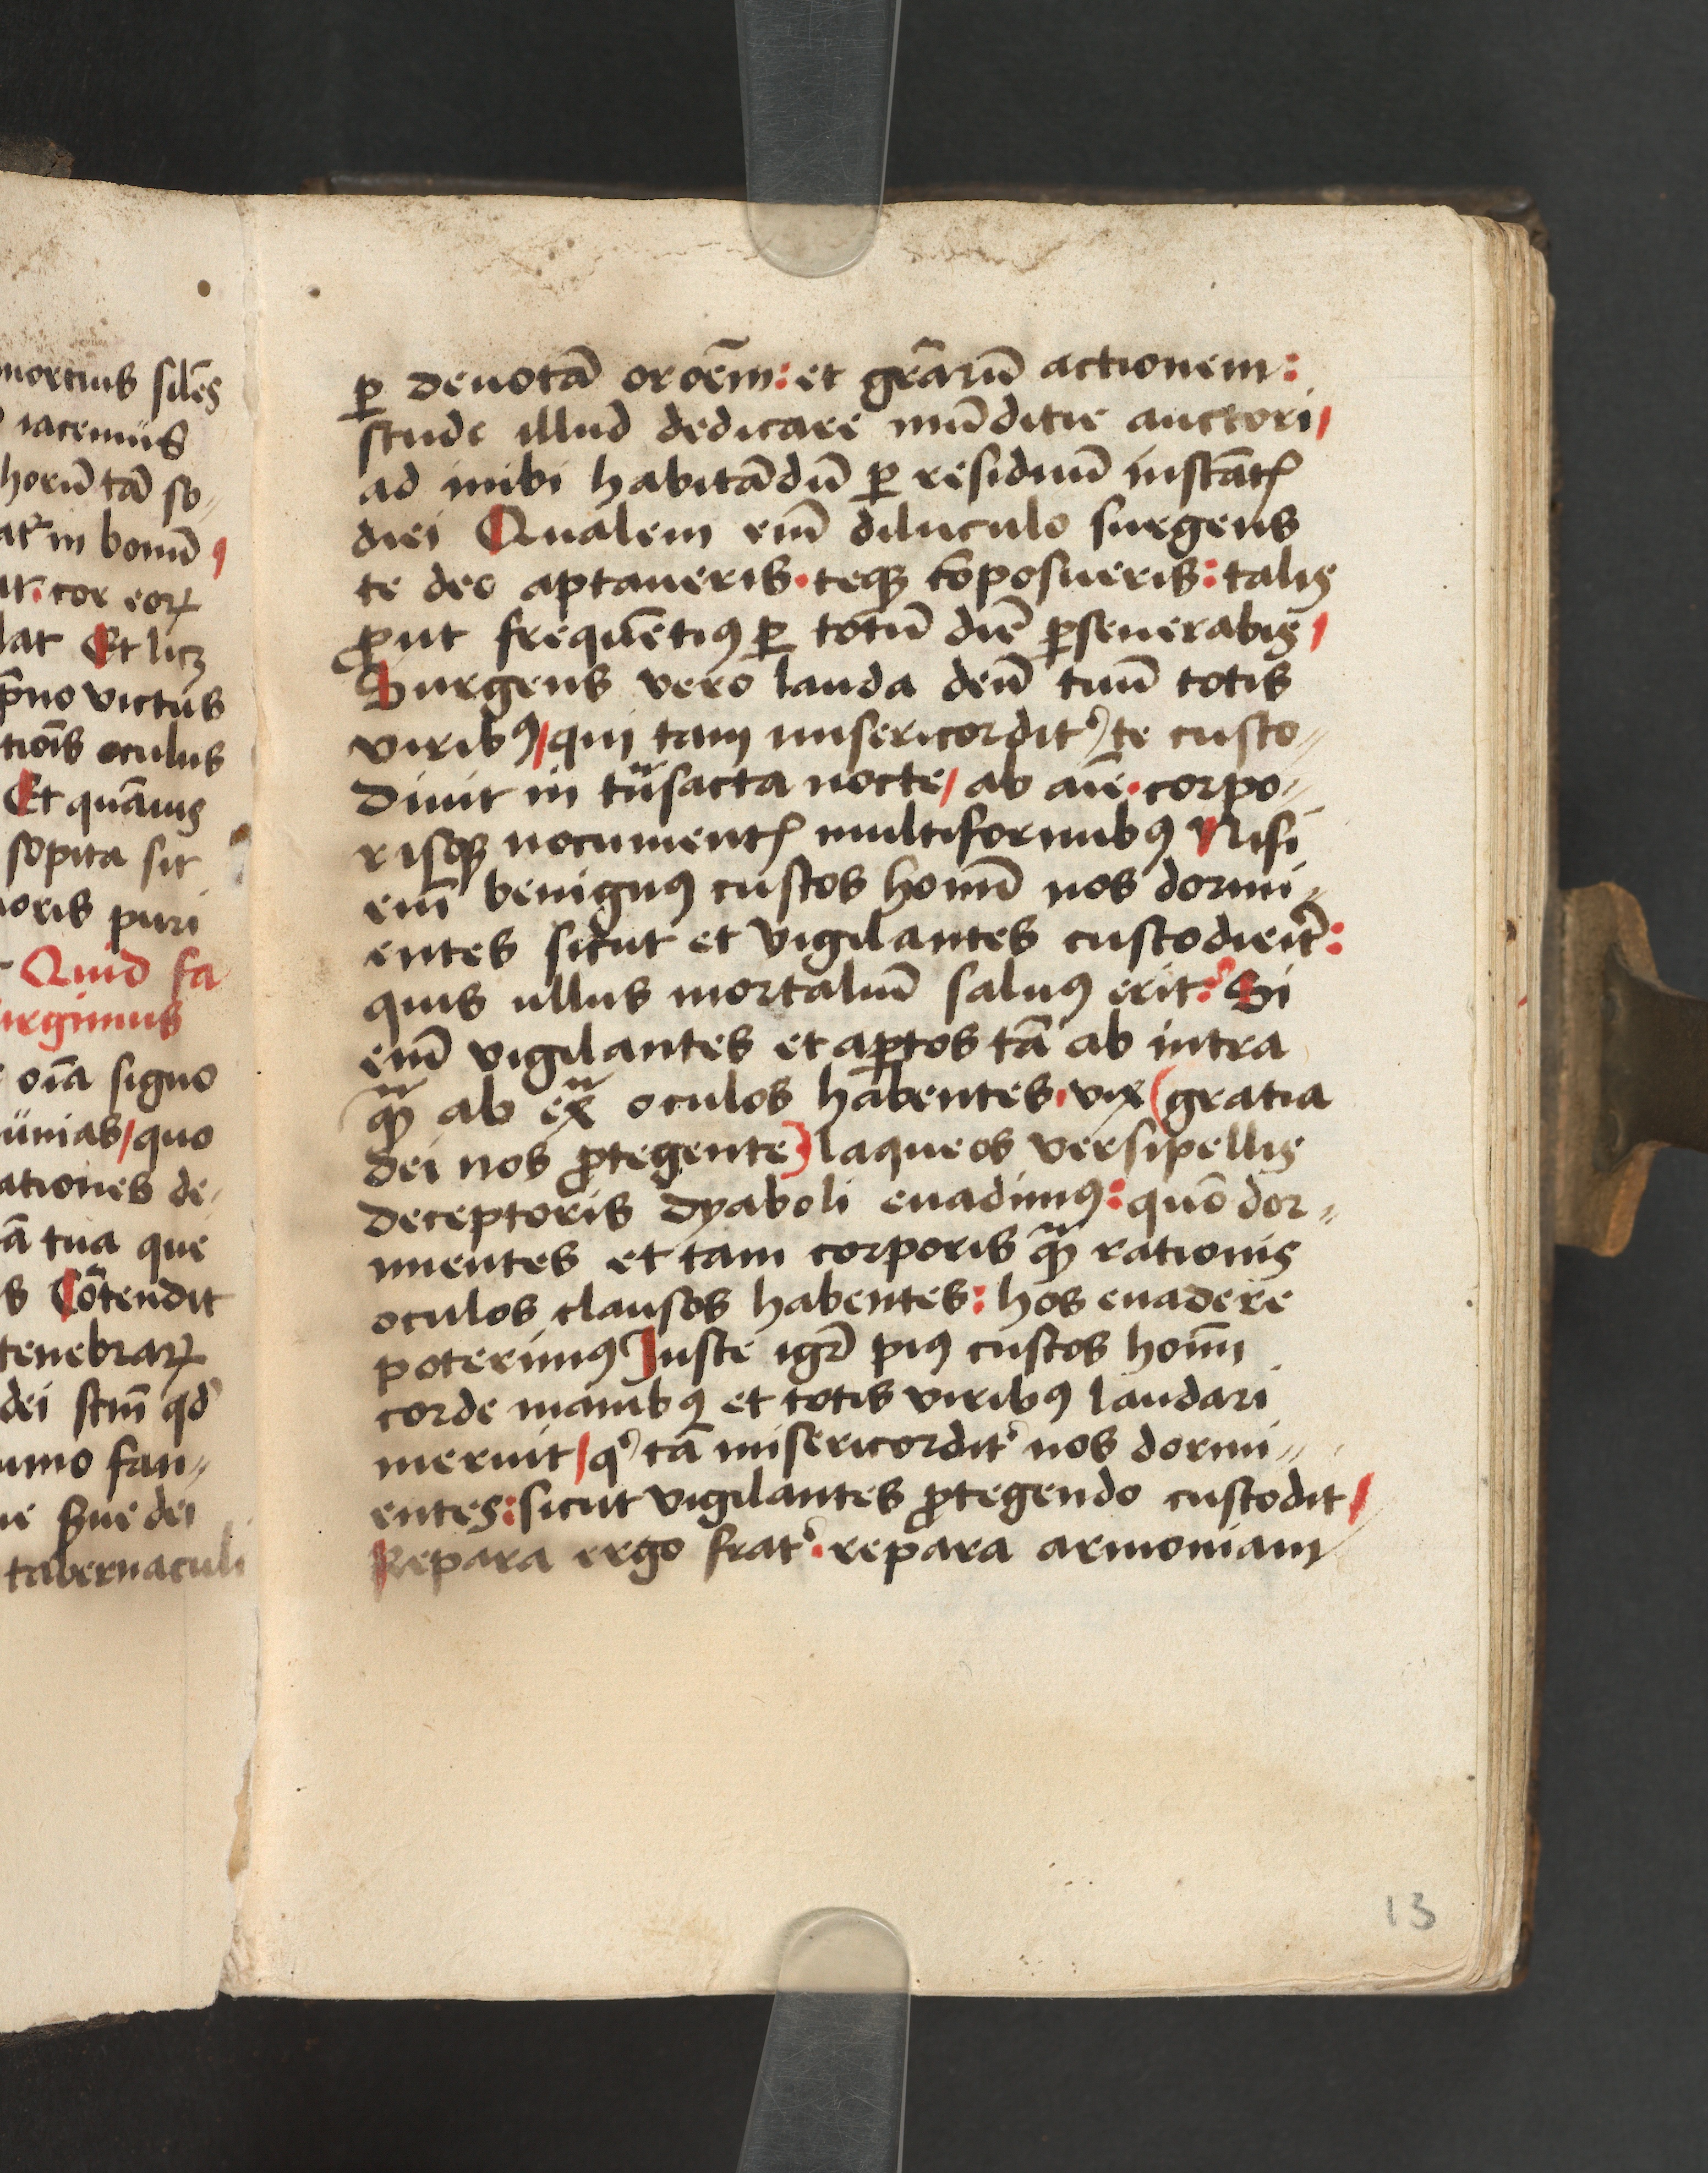 mortuus silẽs
iacemus
horũ tã so
at᷑ in bonũ
cor eoꝝ
lat Et licꝫ
p̃no victus
tiõis oculus
Et quãuis
sopita sit
oris puri
Quid fa
urgimus
oĩa signo
ünias / quo
ationes de
ã tua que
s Cõtendit
tenebraꝝ
dei scm̃ qd
umo fau
ue siue dei
tabernaculi
ꝑ deuotã oroẽm : et gr̃arũ actionem :
stude illud dedicare mũditie auctori /
ad inibi habitãdũ ꝑ residuũ instãtꝭ
diei Qualem em̃ diluculo surgens
te deo aptaueris · teqꝫ cõposueris : talis
ꝓut frequẽtiꝰ ꝑ totũ diẽ ꝑseuerabis /
Surgens vero lauda deũ tuũ totis
viribꝰ / qui tam misericordit᷑ te custo〃
diuit in tñsacta nocte / ab aĩe · corpo〃
risqꝫ nocumentꝭ multiformibꝰ Nisi
em̃ benignꝰ custos homĩ nos dormi〃
entes sicut et vigilantes custodieit᷑ :
quis ullus mortaliũ saluꝰ erit ? Si
em̃ vigilantes et aꝑtos tã ab intra
qꝫ̃ ab ex̃ oculos habentes · vix ( gratia
dei nos ꝓtegente ) laqueos versipellis
deceptoris dyaboli euadimꝰ : quõ dor〃
mientes et tam corporis qꝫ̃ rationis
oculos clausos habentes : hos euadere
poterimꝰ Juste igr̃ piꝰ custos homĩ
corde manibꝰ et totis viribꝰ laudari
meruit / qͥ tã misericordit᷑ nos dormi〃
entes : sicut vigilantes ꝓtegendo custodit /
Repara ergo frat᷑ · repara armoniam
13